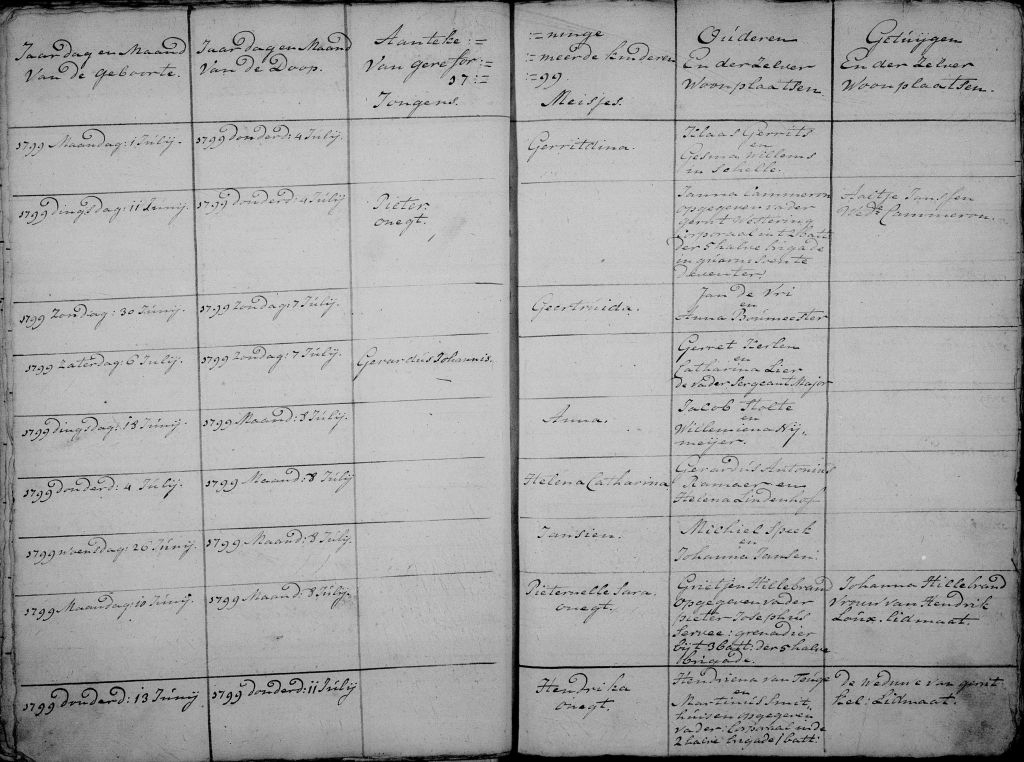 Jaar dag en Maand
Van de geboorte.
Jaar dag en Maand
Van de Doop.
Aanteke:=
Van gerefor:=
17:=
Jongens.
:=ninge
:=meerde kinderen
:=99.
Meisjes.
Ouderen
En derzelver
Woonplaatsen.
Getuijgen
En derzelver
Woonplaatsen.
1799 Maandag: 1 Julij.
1799 donderd: 4 Julij.
Gerritdina.
Klaas Gerrits
en
Gesina Willems
in Schelle.
1799 dingsdag: 11 Junij.
1799 donderd: 4 Julij
Pieter
onegt.
Janna Cammeron
opgegeven vader
gerrit Westering
Corporaal in t 2 batt
der 5 halve brigade
in guarnisoen te
Deventer.
Aaltje Janssen
Wed: Cammeron.
1799 Zondag: 30 Junij.
1799 Zondag: 7 Julij.
Geertruida.
Jan de Vri
en
Anna Boumeester
1799 Zaterdag: 6 Julij.
1799 Zondag: 7 Julij.
Gerardus Johannis.
Gerret
en
Catharina Lier
de vader Sergeant Major
1799 dingsdag: 18 Junij.
1799 Maand: 8 Julij.
Anna.
Jacob Stolte
en
Willemiena Nij-
meijer.
1799 donderd: 4 Julij.
1799 Maand: 8 Julij
Helena Catharina
Gerardus Antonius
Ramaer en
Helena Lindenhof
1799 woensdag: 26 Junij.
1799 Maand: 8 Julij.
Jansien.
Michiel Speek
en
Johanna Jansen.
1799 Maandag: 10 Junij.
1799 Maand: 8 Julij.
Pieternelle Sara.
onegt.
Grietjen Hillebrand
opgegeven vader
pieter Josephus
Servee: grenadier
bijt 3 batt: der 5 halve
brigade.
Johanna Hillebrand
vrouw van Hendrik
Loux. lidmaat.
1799 donderd: 13 Junij
1799 donderd: 11 Julij
Hendrika
onegt.
Hendriena van
en
Martinus Smit,
huisen opgegeven
vader: Corporaal in de
2 halve brigade 1 batt:
de Weduwe van gerrit
Kel: Lidmaat.